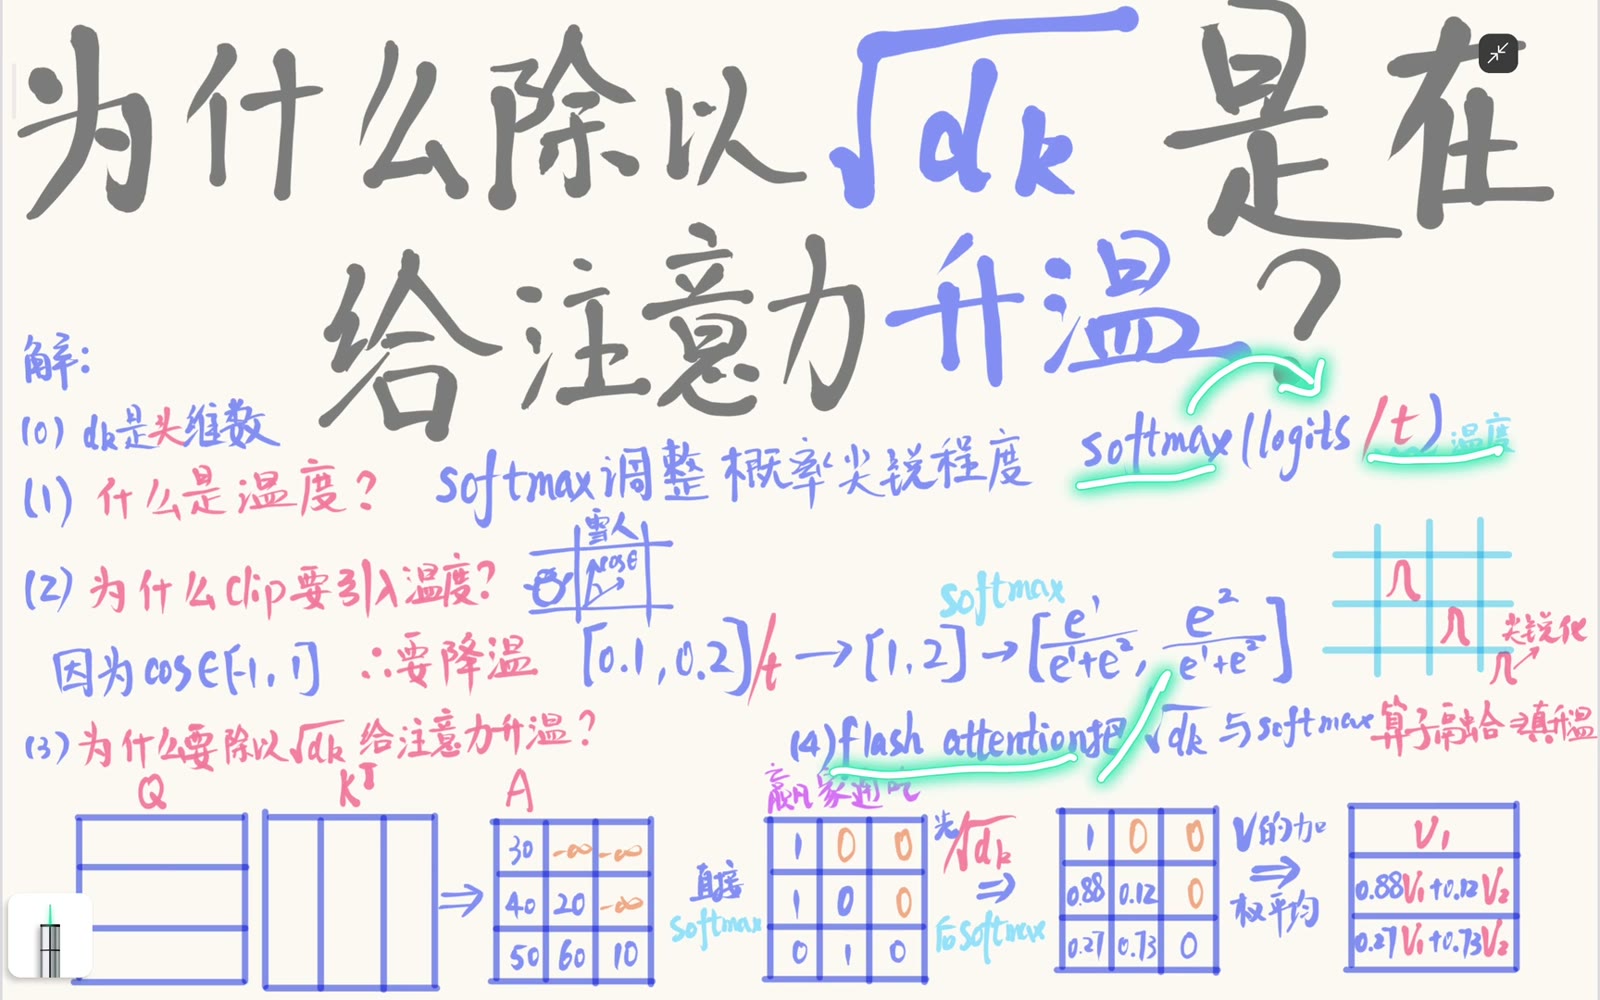 为什么除以√dk是在
给注意力升温?
解:
(0) dk是头维数
(1) 什么是温度? softmax调整概率尖锐程度 softmax(logits/t) 温度
(2) 为什么Clip要引入温度?
雪人
cosθ
因为cos∈[-1,1] ∴要降温 [0.1,0.2]/t→[1,2]→[e¹/(e¹+e²), e²/(e¹+e²)]
softmax
尖锐化
(3) 为什么要除以√dk给注意力升温?
(4) flash attention把/√dk与softmax算子融合≠真升温
Q K^T A
30 -∞ -∞
40 20 -∞
50 60 10
直接
softmax
赢家通吃
1 0 0
1 0 0
0 1 0
先/√dk
后softmax
1 0 0
0.88 0.12 0
0.27 0.73 0
V的加
权平均
V₁
0.88V₁+0.12V₂
0.27V₁+0.73V₂